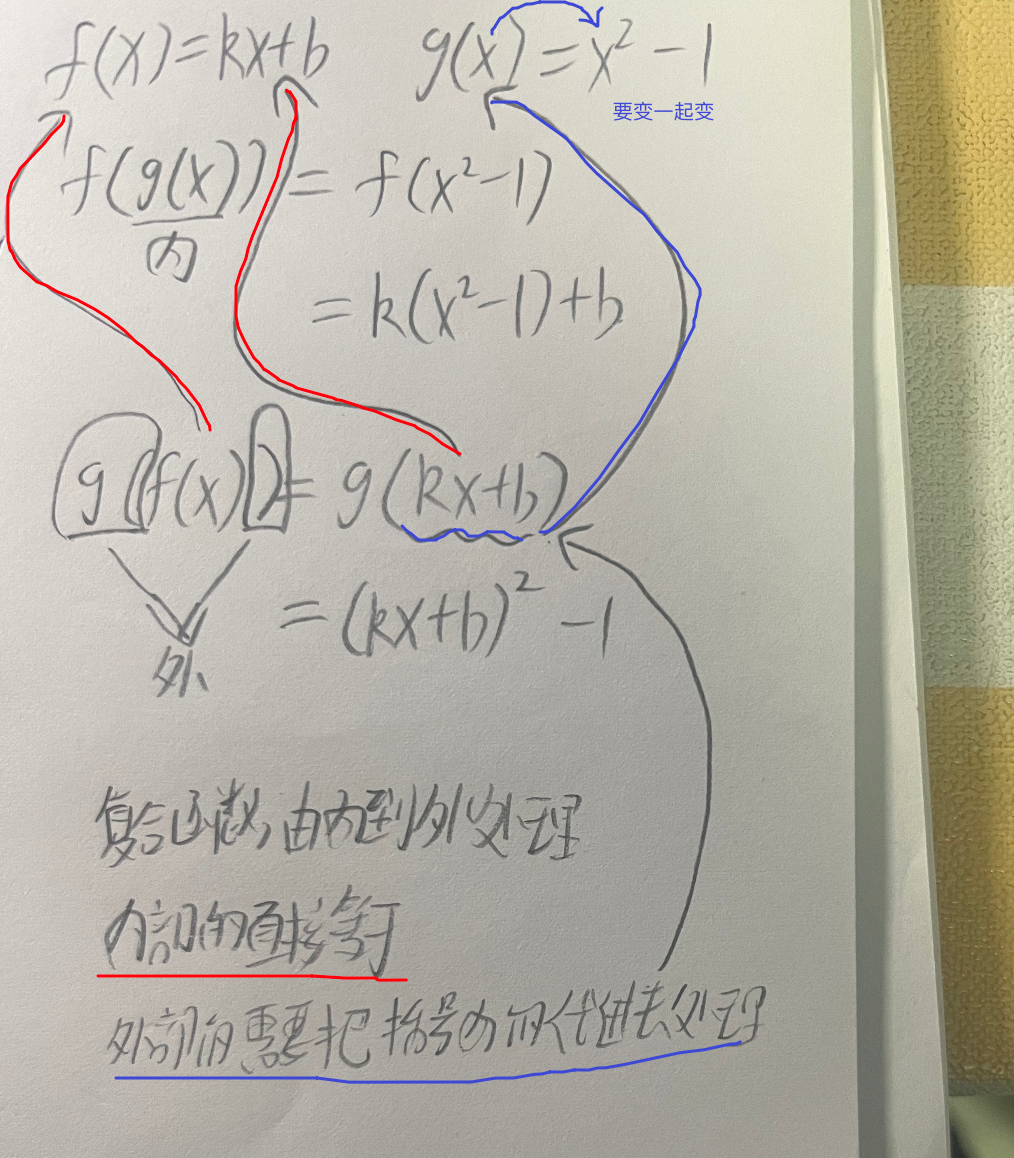 f(x)=kx+b g(x)=x²-1
要变一起变
f(g(x))=f(x²-1)
内
=k(x²-1)+b
g(f(x))=g(kx+b)
=(kx+b)²-1
外
复合函数,由内到外处理
内部的直接等于
外部的需要把括号内的代进去处理